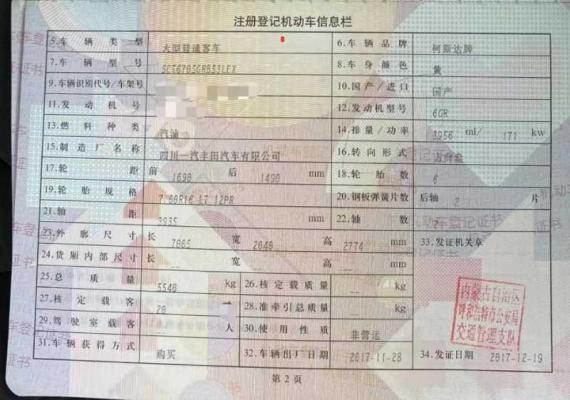 注册登记机动车信息栏
5.车辆类型 大型普通客车 6.车辆品牌 柯斯达牌
7.车辆型号 SCT6705GRB53LEX 8.车身颜色 黄
9.车辆识别代号/车架号 10.国产/进口 国产
11.发动机号 12.发动机型号 6GR
13.燃料种类 汽油 14.排量/功率 3956 ml/ 171 kw
15.制造厂名称 四川一汽丰田汽车有限公司 16.转向形式 方向盘
17.轮距 前 1690 后 1490 mm 18.轮胎数 6
19.轮胎规格 7.00R16 LT 12PR 20.钢板弹簧片数 后轴 2 片
21.轴距 3935 mm 22.轴数 2
23.外廓尺寸 长 7005 宽 2040 高 2774 mm 33.发证机关章
24.货厢内部尺寸 长 宽 高 mm
25.总质量 5540 kg 26.核定载质量 kg
27.核定载客 20 人 28.准牵引总质量 kg
29.驾驶室载客 人 30.使用性质 非营运
31.车辆获得方式 购买 32.车辆出厂日期 2017-11-28 34.发证日期 2017-12-19
内蒙古自治区
呼和浩特市公安局
交通管理支队
第2页